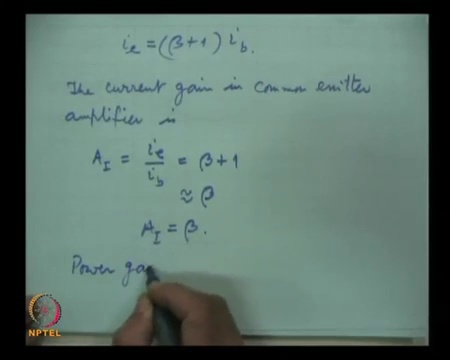 i_e = (β+1) i_b.
The current gain in common emitter
amplifier is
A_I = i_e / i_b = β+1
≈ β
A_I = β.
Power ga
NPTEL